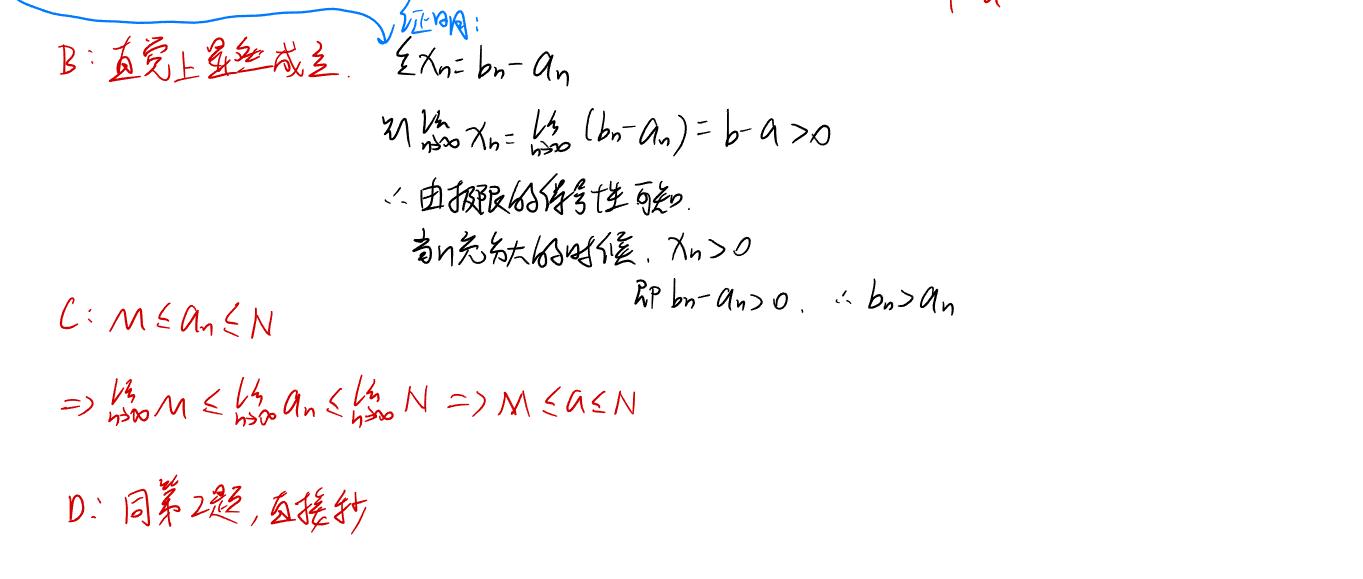 证明:
B: 直觉上显然成立.
令xₙ= bₙ- aₙ
则 lim n→∞ xₙ= lim n→∞ (bₙ-aₙ)= b-a>0
∴ 由极限的保号性可知.
当n充分大的时候, xₙ>0
即 bₙ-aₙ>0. ∴ bₙ>aₙ
C: M≤aₙ≤N
=> lim n→∞ M ≤ lim n→∞ aₙ ≤ lim n→∞ N => M≤a≤N
D: 同第2题,直接抄